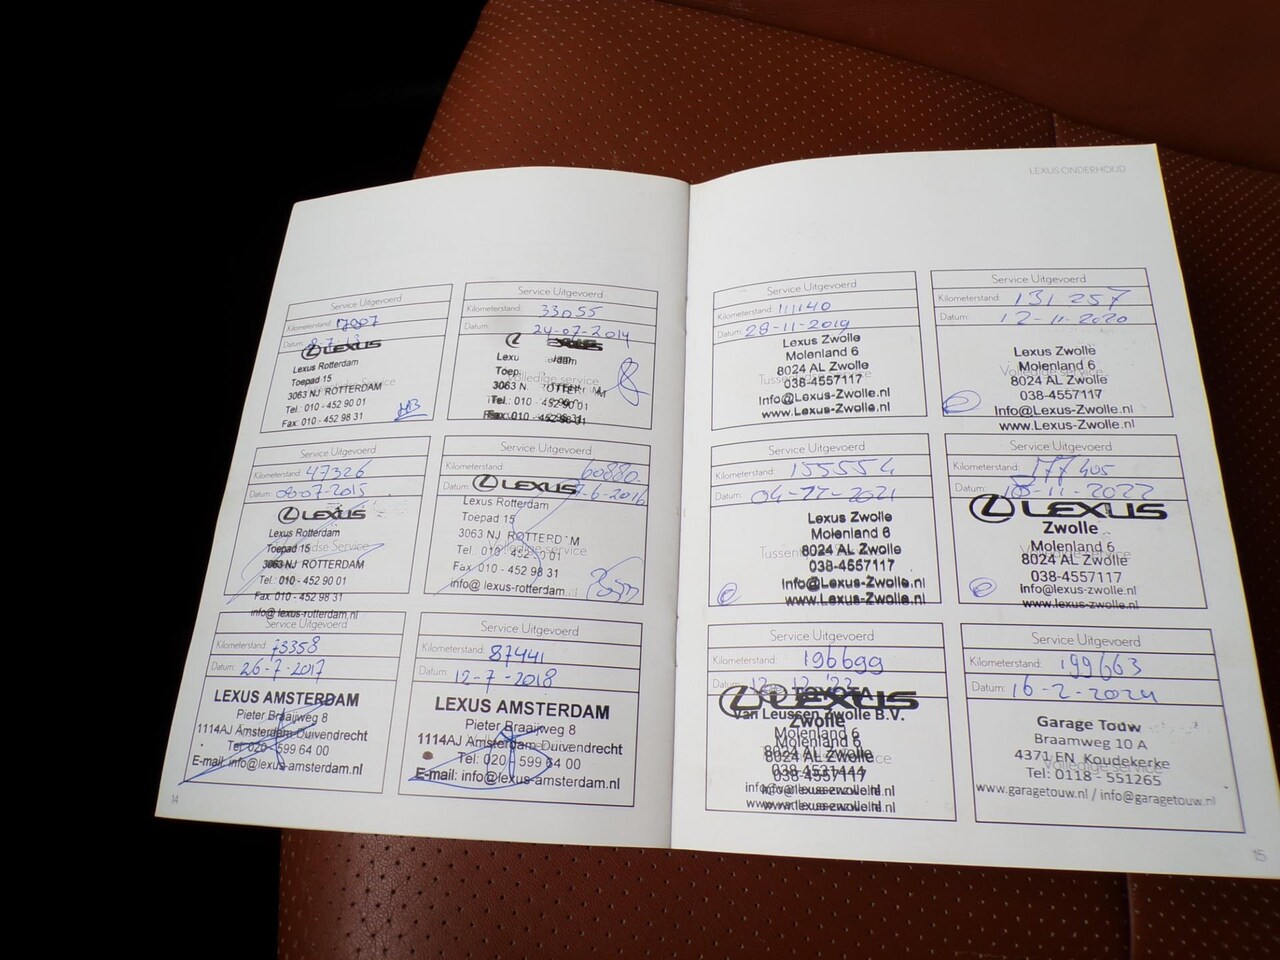 LEXUS ONDERHOUD
Service Uitgevoerd
Kilometerstand:
Datum: 8-7-13
LEXUS
Lexus Rotterdam
Toepad 15
3063 NJ ROTTERDAM
Tel.: 010 - 452 90 01
Fax: 010 - 452 98 31
Service Uitgevoerd
Kilometerstand: 33055
Datum: 24-07-2014
Volledige service
3063 NJ ROTTERDAM
Tel.: 010 - 452 90 01
Fax: 010 - 452 98 31
Service Uitgevoerd
Kilometerstand: 47326
Datum: 08-07-2015
LEXUS
Lexus Rotterdam
Toepad 15
3063 NJ ROTTERDAM
Tel.: 010 - 452 90 01
Fax: 010 - 452 98 31
info@lexus-rotterdam.nl
Service Uitgevoerd
Kilometerstand: 60880
Datum: 7-6-2016
LEXUS
Lexus Rotterdam
Toepad 15
3063 NJ ROTTERDAM
Tel.: 010 - 452 90 01
Volledige service
Fax: 010 - 452 98 31
info@lexus-rotterdam.nl
Service Uitgevoerd
Kilometerstand: 73358
Datum: 26-7-2017
LEXUS AMSTERDAM
Pieter Braaijweg 8
1114AJ Amsterdam-Duivendrecht
Tel: 020 - 599 64 00
E-mail: info@lexus-amsterdam.nl
Service Uitgevoerd
Kilometerstand: 87441
Datum: 12-7-2018
LEXUS AMSTERDAM
Pieter Braaijweg 8
1114AJ Amsterdam-Duivendrecht
Tel: 020 - 599 64 00
E-mail: info@lexus-amsterdam.nl
14
Service Uitgevoerd
Kilometerstand: 111140
Datum: 28-11-2019
Lexus Zwolle
Molenland 6
8024 AL Zwolle
038-4557117
Info@Lexus-Zwolle.nl
www.Lexus-Zwolle.nl
Service Uitgevoerd
Kilometerstand: 131 257
Datum: 12-11-2020
Lexus Zwolle
Molenland 6
8024 AL Zwolle
038-4557117
Info@Lexus-Zwolle.nl
www.Lexus-Zwolle.nl
Service Uitgevoerd
Kilometerstand: 155554
Datum: 04-11-2021
Lexus Zwolle
Molenland 6
8024 AL Zwolle
038-4557117
Info@Lexus-Zwolle.nl
www.Lexus-Zwolle.nl
Service Uitgevoerd
Kilometerstand: 177405
Datum: 18-11-2022
LEXUS
Zwolle
Molenland 6
8024 AL Zwolle
038-4557117
Info@lexus-zwolle.nl
www.lexus-zwolle.nl
Service Uitgevoerd
Kilometerstand: 196699
Datum:
TOYOTA
LEXUS
Van Leussen Zwolle B.V.
Zwolle
Molenland 6
8024 AL Zwolle
Service Uitgevoerd
Kilometerstand: 199663
Datum: 16-2-2024
Garage Touw
Braamweg 10 A
4371 EN Koudekerke
Volledige service
Tel: 0118 - 551265
www.garagetouw.nl / info@garagetouw.nl
15